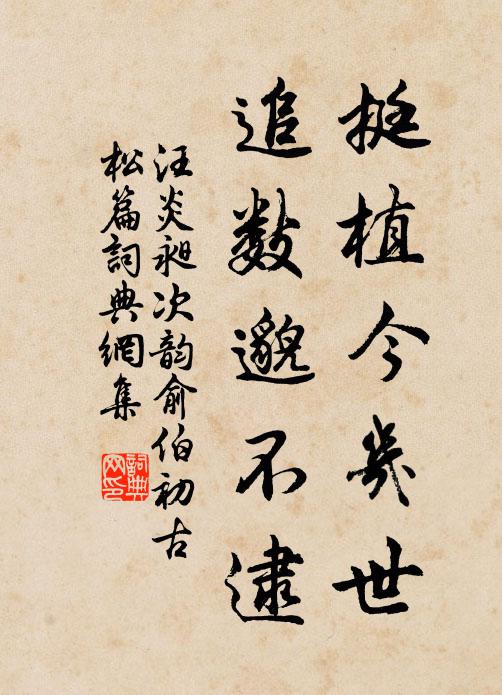 挺植今幾世
追数邈不逮
汪炎昶次韵俞伯初古
松篇詞典網集
詞典网印